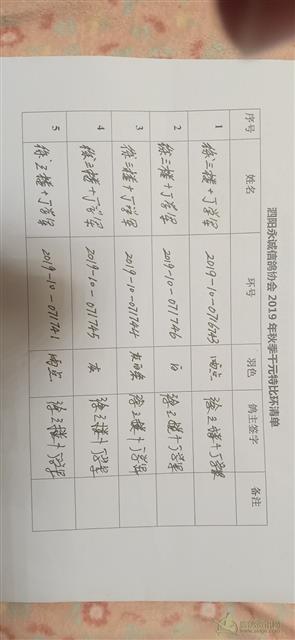 泗阳永诚信鸽协会 2019 年秋季千元特比环清单
序号 姓名 环号 羽色 鸽主签字 备注
1 徐三楼+丁学军 2019-10-0716743 雨点 徐三楼+丁学军
2 徐三楼+丁学军 2019-10-071746 白 徐三楼+丁学军
3 徐三楼+丁学军 2019-10-071744 徐三楼+丁学军
4 徐三楼+丁学军 2019-10-071745 灰 徐三楼+丁学军
5 徐三楼+丁学军 2019-10-071741 雨点 徐三楼+丁学军